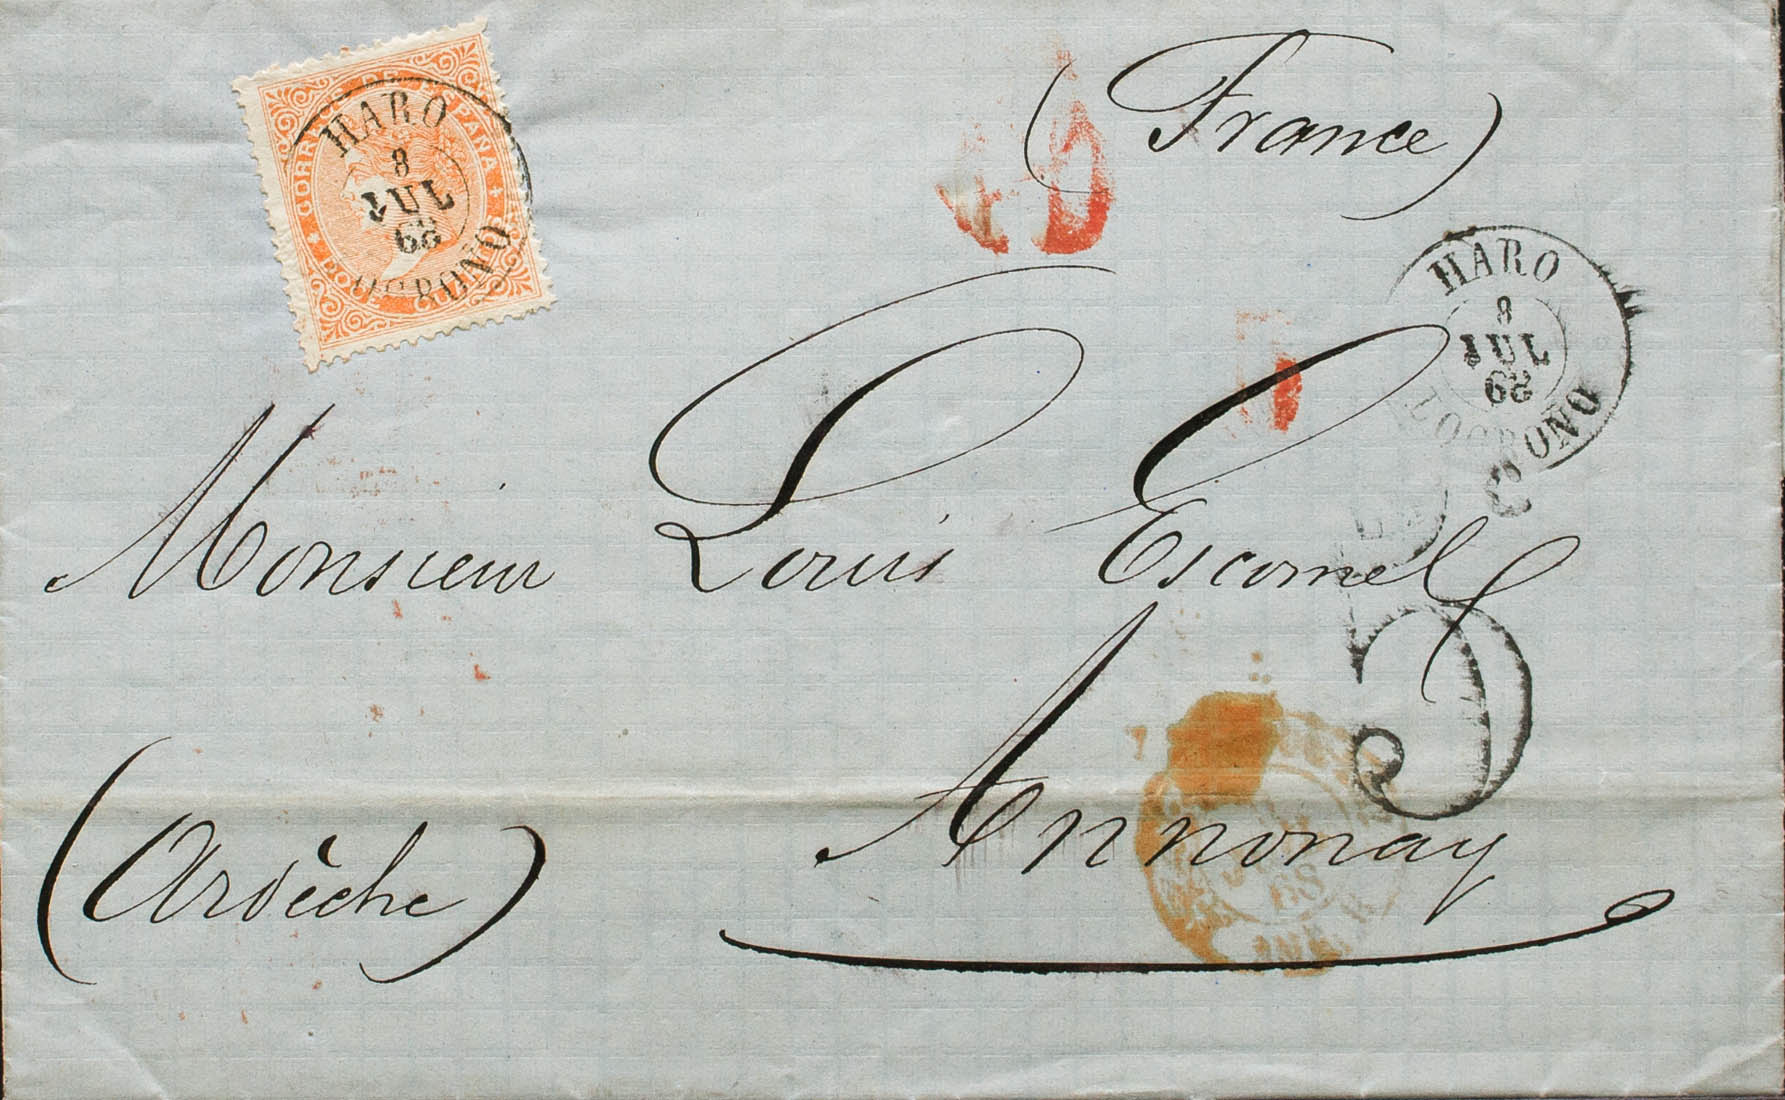 CORREOS DE ESPAÑA
DOCE
HARO
8
JUL
68
LOGROÑO
(France)
HARO
8
JUL
68
LOGROÑO
Monsieur Louis Escomel
5
Annonay
68
(Ardèche)